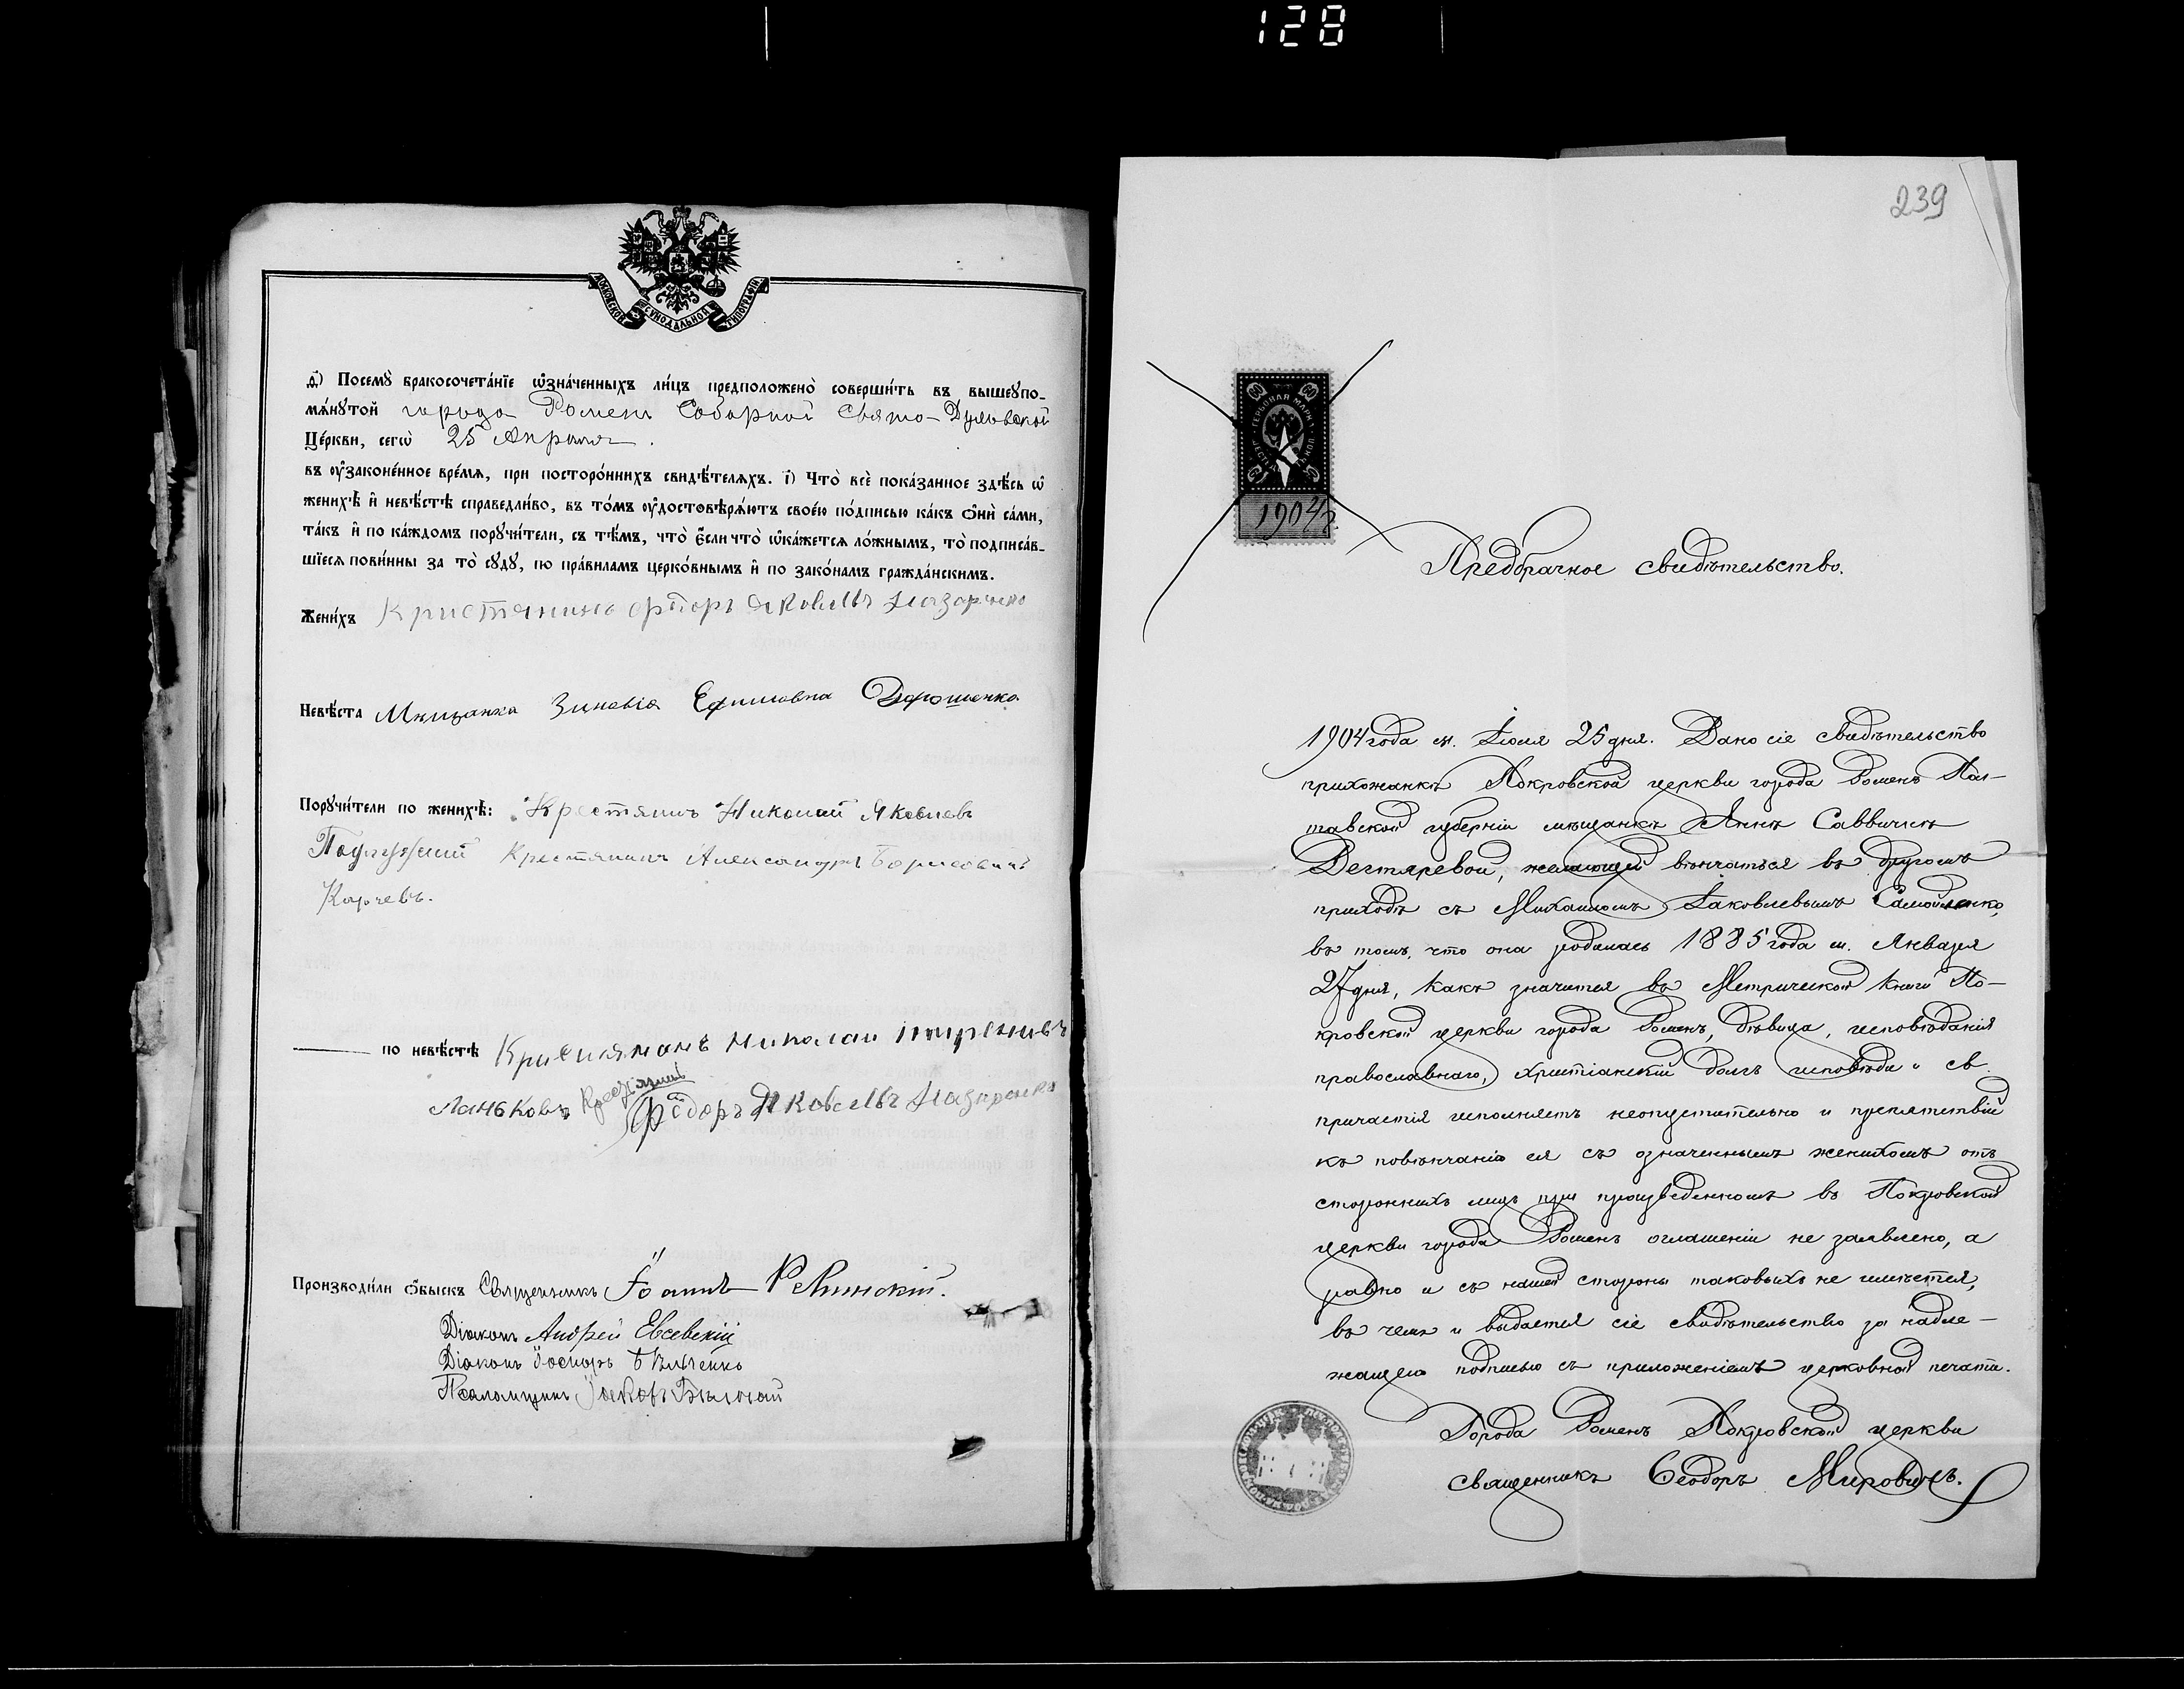 128
МОСКОВСКОЙ СѴНОДАЛЬНОЙ ТИПОГРАФІИ
д҃) Посемꙋ̀ бракосочета́нїе ѡ҆зна́ченныхъ ли́цъ предположено̀ соверши́ть въ вышеꙋпо-
мѧ́нꙋтой города Роменъ Соборной Свято-Духовской
Це́ркви, сегѡ̀ 25 Апрѣля.
въ ᲂу҆законе́нное вре́мѧ, при посторо́ннихъ свидѣ́телѧхъ. і҃) Что̀ всѐ пока́занное здѣ́сь ѡ҆
женихѣ̀ и҆ невѣ́стѣ справедли́во, въ то́мъ ᲂу҆достовѣрѧ́ютъ свое́ю по́дписью ка́къ ѻ҆нѝ са́ми,
та́къ и҆ по ка́ждомъ порꙋчи́тели, съ тѣ́мъ, что̀ є҆́сли что̀ ѡ҆ка́жется ло́жнымъ, то̀ подписа́в-
шїесѧ пови́нны за то̀ сꙋдꙋ̀, по пра́виламъ церко́внымъ и҆ по зако́намъ гражда́нскимъ.
Жени́хъ Яковлвъ Назаренко
Невѣ́ста Мѣщанка Зиновія Ефимовна Дорошенко
Порꙋчи́тели по женихѣ̀: Николай Яковлевъ
Крестянинъ Александръ Борисовичъ
Карчевъ.
по невѣ́стѣ Николай
Ланьковъ Ѳедоръ Яковлвъ Назаренко
Производи́ли ѻ҆́быскъ Священникъ Іоаннъ Релинскій.
Діаконъ Андрей Евсевскій
Діаконъ
Псаломщикъ Іаковъ
239
ГЕРБОВАЯ МАРКА
60 60
1904 г.
Предбрачное свидѣтельство.
1904 года м. Іюля 25 дня. Дано сіе свидѣтельство
прихожанкѣ Покровской церкви города Роменъ Пол-
тавской губерніи мѣщанкѣ Аннѣ Саввичнѣ
Дегтяревой, желающей вѣнчаться въ другомъ
приходѣ съ Михаиломъ Іаковлевымъ Самойленко,
въ томъ, что она родилась 1885 года м. Января
27 дня, какъ значится въ Метрической книги По-
кровской церкви города Роменъ, дѣвица, исповѣданія
православнаго, христіанскій долгъ исповѣди и св.
причастія исполняетъ неопустительно и препятствій
къ повѣнчанію ея съ означеннымъ женихомъ отъ
стороннихъ лицъ при произведенномъ въ Покровской
церкви города Роменъ оглашеніи не заявлено, а
равно и съ нашей стороны таковыхъ не имѣется,
въ чемъ и выдается сіе свидѣтельство за надле-
жащею подписью съ приложеніемъ церковной печати.
Города Роменъ Покровской церкви
священникъ Ѳеодоръ Мировичъ.